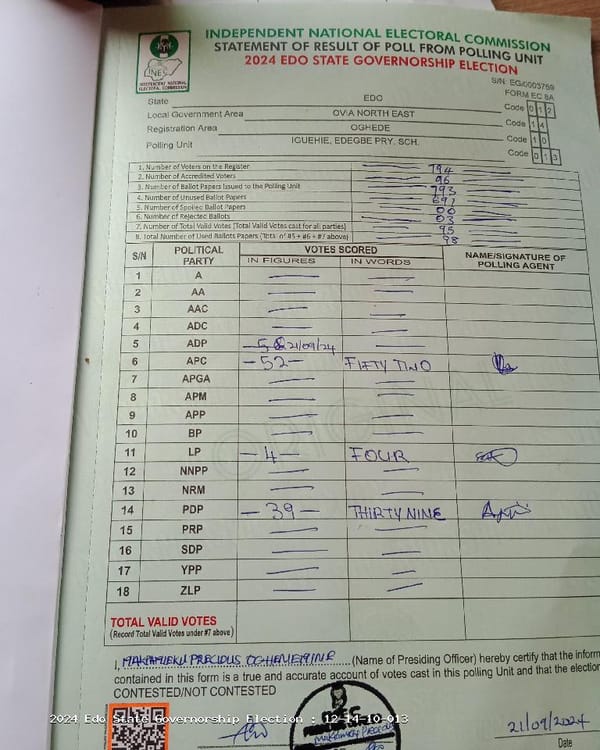 INDEPENDENT NATIONAL ELECTORAL COMMISSION
STATEMENT OF RESULT OF POLL FROM POLLING UNIT
2024 EDO STATE GOVERNORSHIP ELECTION
INEC
INDEPENDENT NATIONAL ELECTORAL COMMISSION
S/N: EG/0003759
FORM EC 8A
State EDO Code 0 1 2
Local Government Area OVIA NORTH EAST Code 1 4
Registration Area OGHEDE Code 1 0
Polling Unit IGUEHIE, EDEGBE PRY. SCH. Code 0 1 3
1. Number of Voters on the Register 794
2. Number of Accredited Voters 96
3. Number of Ballot Papers Issued to the Polling Unit 793
4. Number of Unused Ballot Papers 697
5. Number of Spoiled Ballot Papers 00
6. Number of Rejected Ballots 03
7. Number of Total Valid Votes (Total Valid Votes cast for all parties) 95
8. Total Number of Used Ballots Papers (Total of #5 + #6 + #7 above) 98
S/N POLITICAL PARTY VOTES SCORED NAME/SIGNATURE OF POLLING AGENT
IN FIGURES IN WORDS
1 A
2 AA
3 AAC
4 ADC
5 ADP 21/09/24
6 APC -52- FIFTY TWO
7 APGA
8 APM
9 APP
10 BP
11 LP -4- FOUR
12 NNPP
13 NRM
14 PDP -39- THIRTY NINE
15 PRP
16 SDP
17 YPP
18 ZLP
TOTAL VALID VOTES
(Record Total Valid Votes under #7 above)
I, PRECIOUS (Name of Presiding Officer) hereby certify that the inform
contained in this form is a true and accurate account of votes cast in this polling Unit and that the election
CONTESTED/NOT CONTESTED
2024 Edo State Governorship Election : 12-14-10-013
21/09/2024
Date